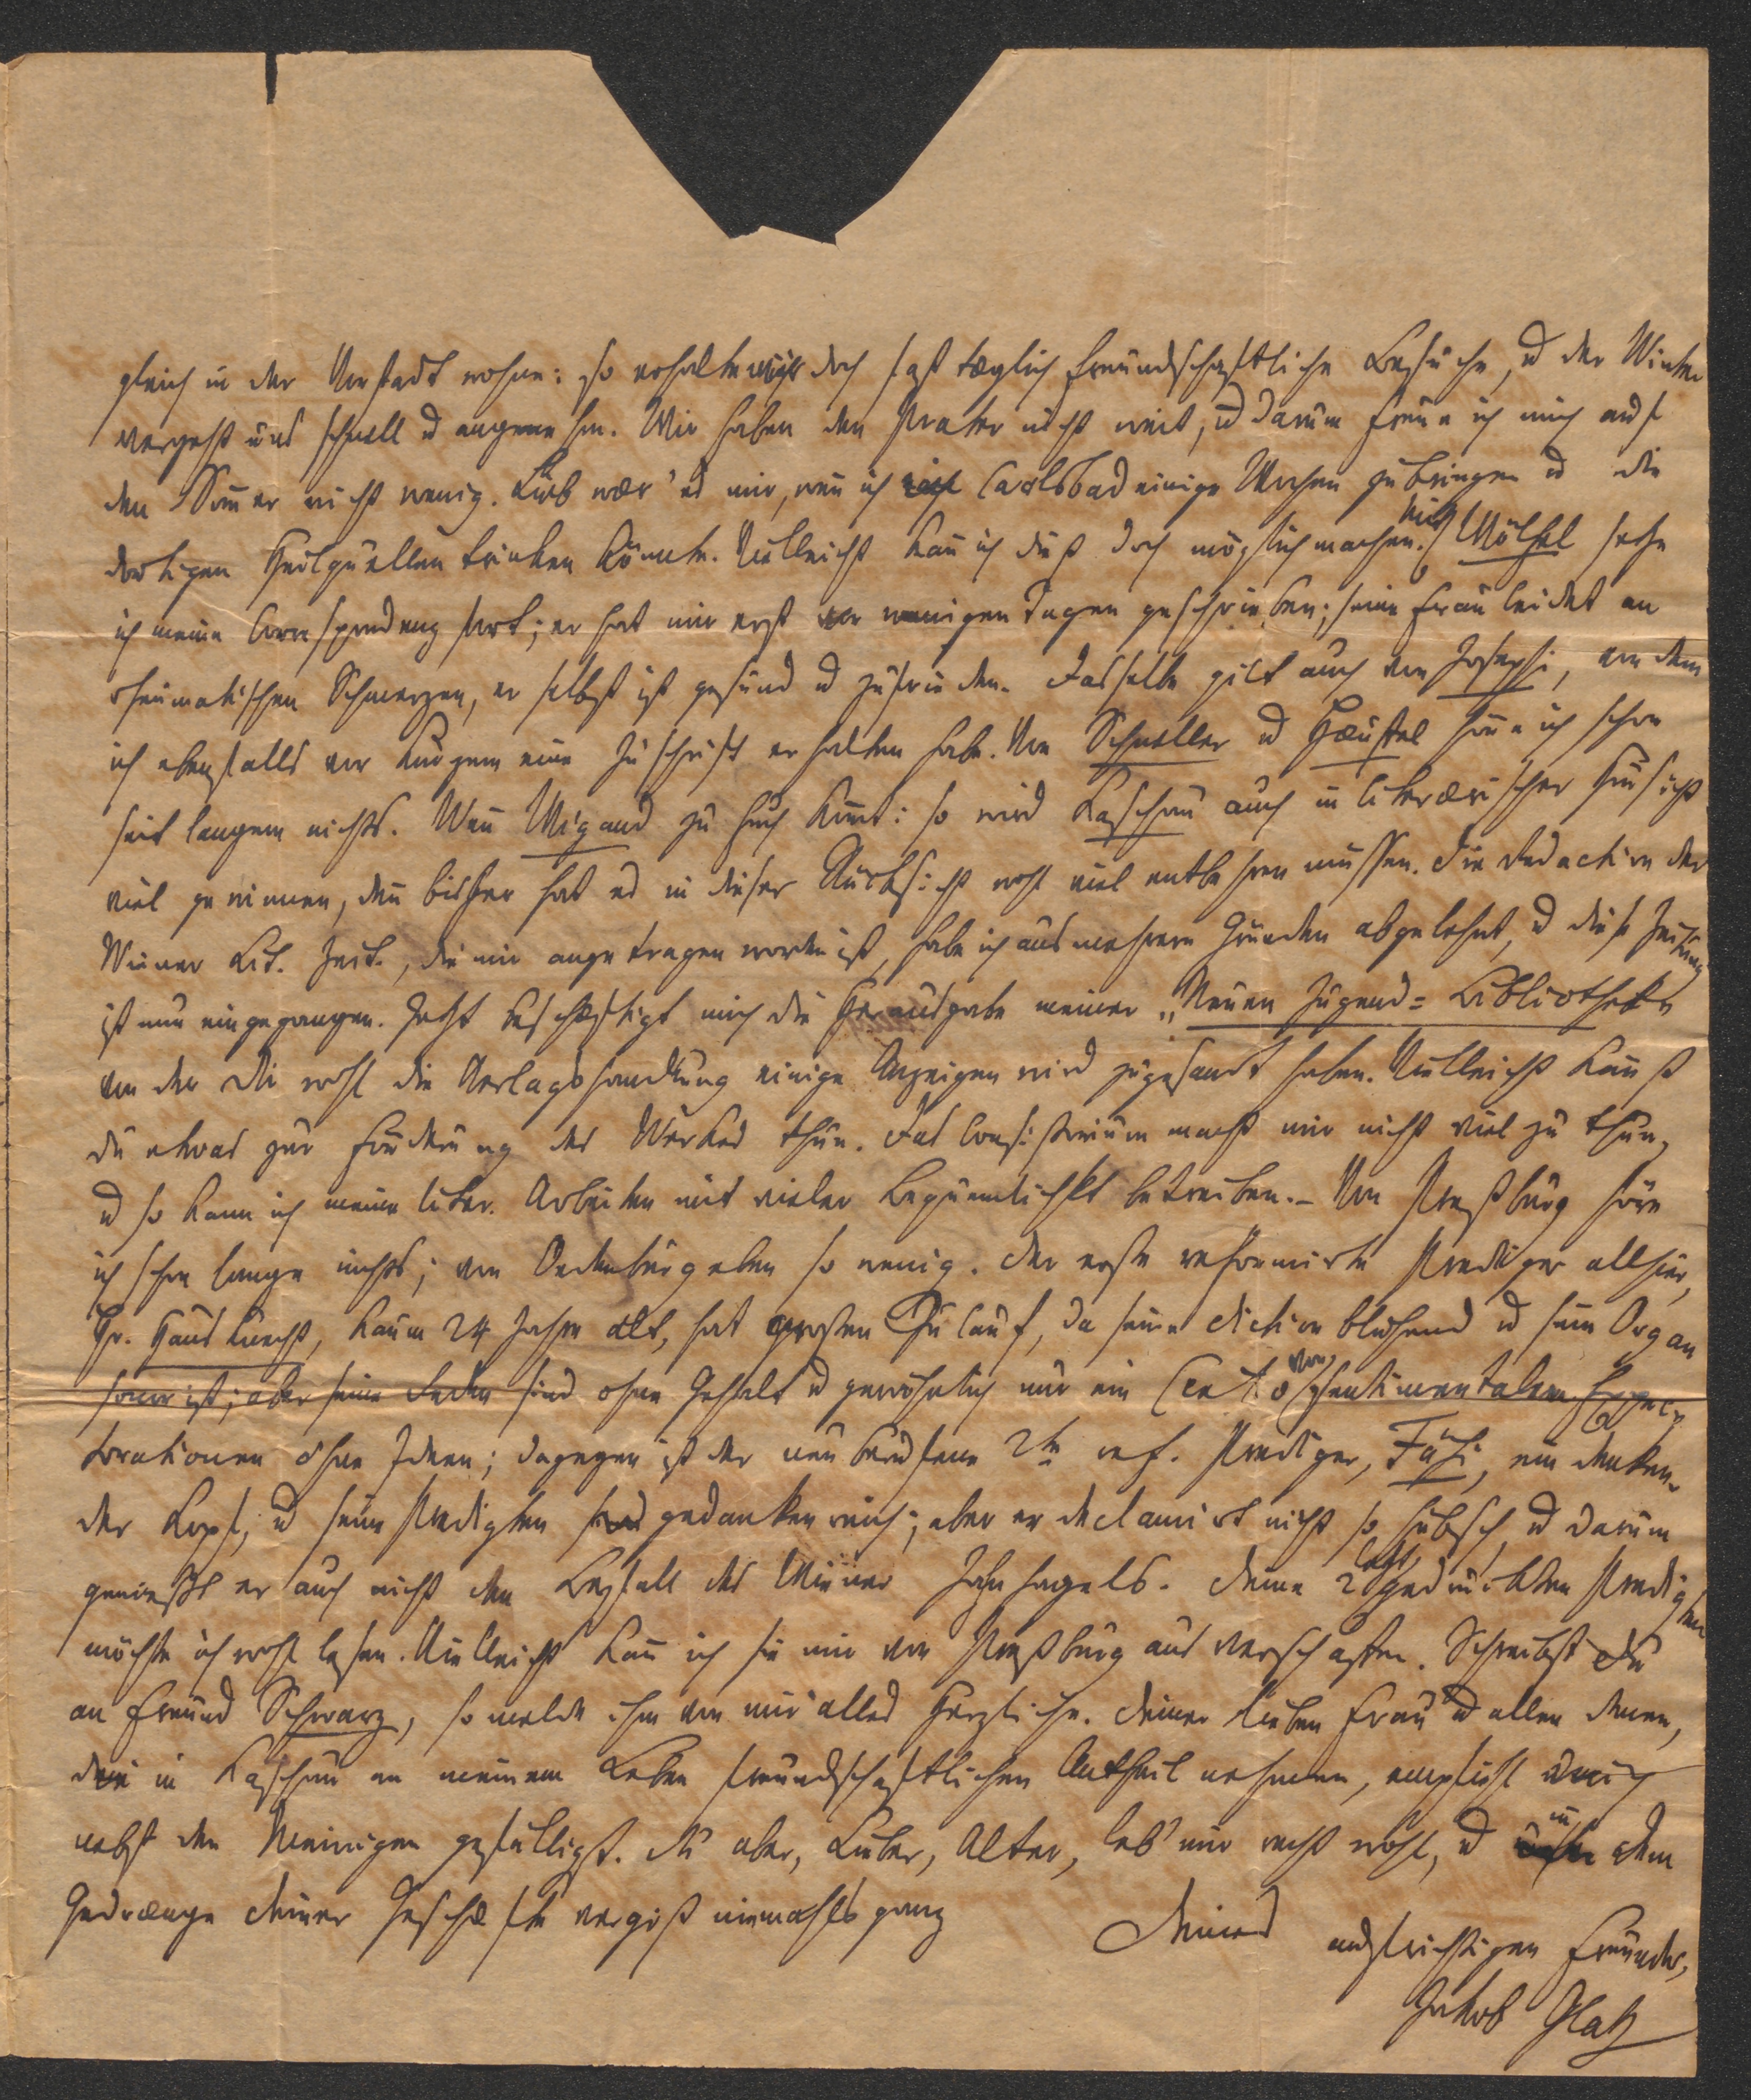 gleich in der Vorstadt wohne: so erhalten wir doch fast täglich freundschaftliche Besuche, u der Winter
vergeht uns schnell u angenehm. Wir haben den Prater nicht weit, u darum freue ich mich auf
den Som̅er nicht wenig. Lieb wär' es mir, wen̅ ich in Carlsbad einige Wochen zubringen u die
dortigen Heilquellen trinken könnte. Vielleicht kan̅ ich dieß doch möglich machen. Mit Wölfel setze
ich meine Correspondenz fort; er hat mir erst vor wenigen Tagen geschrieben; seine Frau leidet an
rheumatischen Schmerzen, er selbst ist gesund u zufrieden. Dasselbe gilt auch von Josephi, von dem
ich ebenfalls vor Kurzem eine Zuschrift erhalten habe. Von Schneller u Häuffel höre ich schon
seit langem nichts. Wen̅ Wigand zu Euch kom̅t: so wird Kaschau auch in literärischer Hinsicht
viel gewinnen, den̅ bisher hat es in dieser Rücksicht wohl viel entbehren müssen. Die Redaction der
Wiener Lit. Zeit., die mir angetragen worden ist, habe ich aus mehrern Gründen abgelehnt, u diese Zeitung
ist nun eingegangen. Jetzt beschäftigt mich die Herausgabe meiner „Neuen Jugend=Bibliothek"
von der Dir wohl die Verlagshandlung einige Anzeigen wird zugesandt haben. Vielleicht kan̅st
du etwas zur Förderung des Werkes thun. Das Consistorium macht mir nicht viel zu thun,
u so kann ich meine liter. Arbeiten mit vieler Bequemlichkt betreiben. – Von Preßburg höre
ich schon lange nichts; von Oedenburg eben so wenig. Der erste reformirte Prediger allhier,
Hr. Hausknecht, kaum 24 Jahre alt, hat großen Zulauf, da seine Diction blühend u sein Organ
sonor ist; aber seine Reden sind ohne Gehalt u gewöhnlich nur ein Cento von sentimentalen Expec-
torationen ohne Ideen; dagegen ist der neu berufene 2te ref. Prediger, Fäsi, ein denken-
der Kopf, u seine Predigten sind gedankenreich; aber er declamirt nicht so hübsch u darum
genießt er auch nicht den Beyfall des Wiener Janhagels. Deine 2 letzt gedruckten Predigten
möchte ich wohl lesen. Vielleicht kan̅ ich sie mir von Preßburg aus verschaffen. Schreibst Du
an Freund Schwarz, so melde ihm von mir alles Herzliche. Deiner lieben Frau u allen denen,
die in Kaschau an meinem Leben freundschaftlichen Antheil nehmen, empfiehl mich
nebst den Meinigen gefälligst. Du aber, Lieber, Alter, leb' mir recht wohl, u in dem
Gedränge deiner Geschäfte vergiß niemahls ganz
Deines aufrichtigen Freundes,
Jakob Glatz